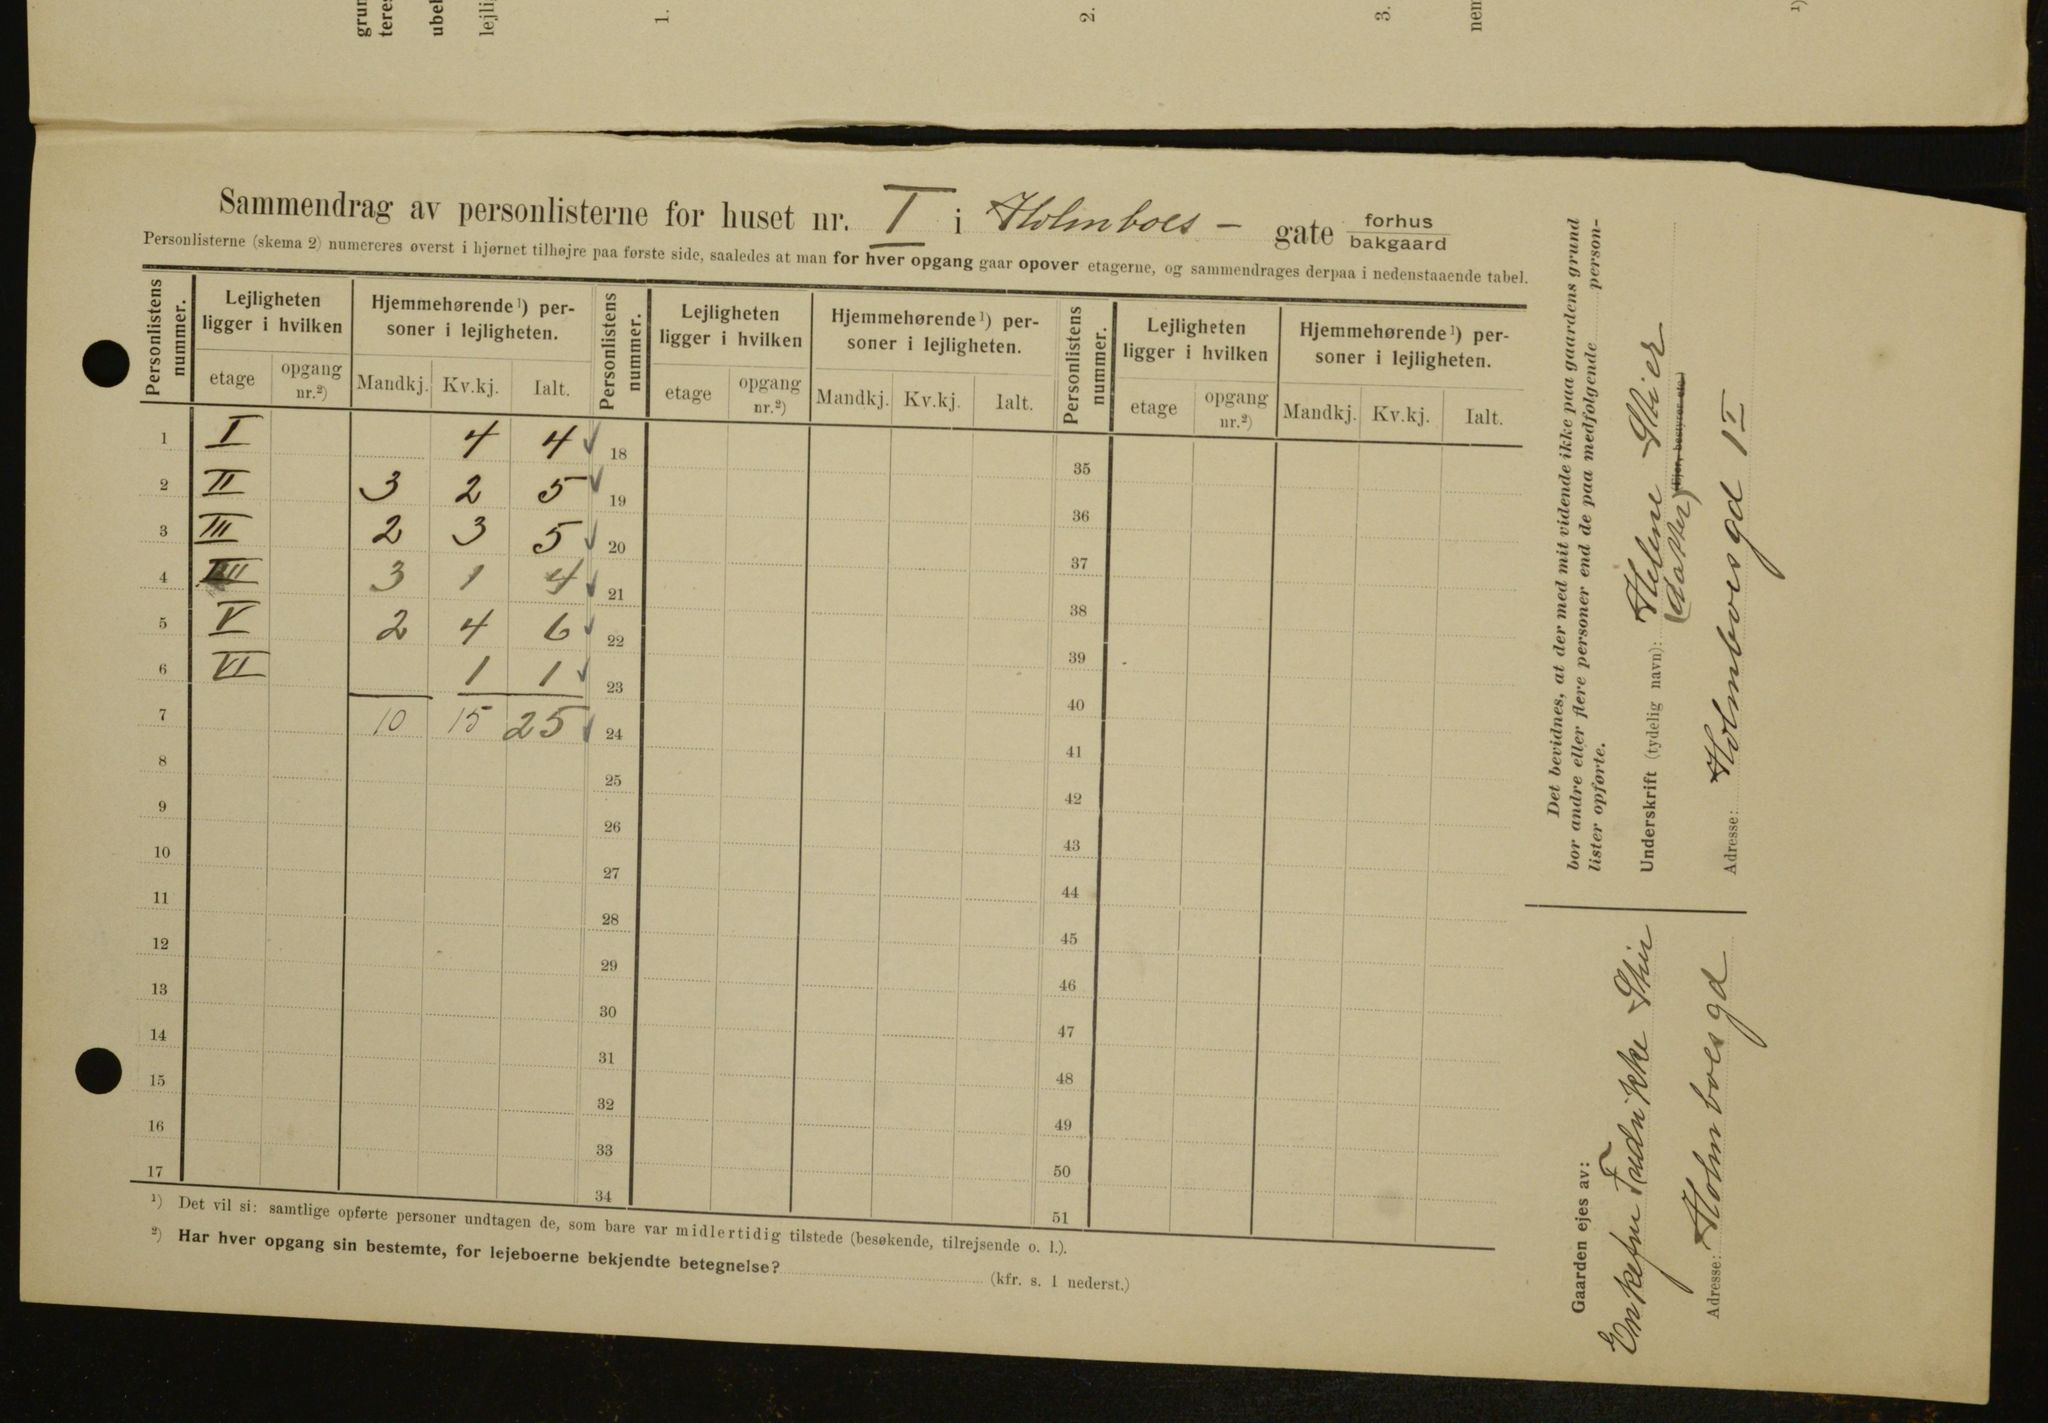 grun
teres
ubel
lejli
1.
2.
3.
nen
1)
Sammendrag av personlisterne for huset nr. I i Holmboes - gate forhus
bakgaard
Personlisterne (skema 2) numereres øverst i hjørnet tilhøjre paa første side, saaledes at man for hver opgang gaar opover etagerne, og sammendrages derpaa i nedenstaaende tabel.
Personlistens nummer. Lejligheten ligger i hvilken Hjemmehørende¹) personer i lejligheten. Personlistens nummer. Lejligheten ligger i hvilken Hjemmehørende¹) personer i lejligheten. Personlistens nummer. Lejligheten ligger i hvilken Hjemmehørende¹) personer i lejligheten.
etage opgang nr.²) Mandkj. Kv.kj. Ialt. etage opgang nr.²) Mandkj. Kv.kj. Ialt. etage opgang nr.²) Mandkj. Kv.kj. Ialt.
1 I 4 4 ✓ 18 35
2 II 3 2 5 ✓ 19 36
3 III 2 3 5 ✓ 20 37
4 IIII 3 1 4 ✓ 21 38
5 V 2 4 6 ✓ 22 39
6 VI 1 1 ✓ 23 40
7 10 15 25 ✓ 24 41
8 25 42
9 26 43
10 27 44
11 28 45
12 29 46
13 30 47
14 31 48
15 32 49
16 33 50
17 34 51
¹) Det vil si: samtlige opførte personer undtagen de, som bare var midlertidig tilstede (besøkende, tilrejsende o. l.).
²) Har hver opgang sin bestemte, for lejeboerne bekjendte betegnelse? (kfr. s. 1 nederst.)
Det bevidnes, at der med mit vidende ikke paa gaardens grund
bor andre eller flere personer end de paa medfølgende person-
lister opførte.
Underskrift (tydelig navn): Helene
(datter) (Ejer, bestyrer etc.)
Adresse: Holmboesgd 1 I
Gaarden ejes av:
Enkefru
Adresse: Holmboesgd